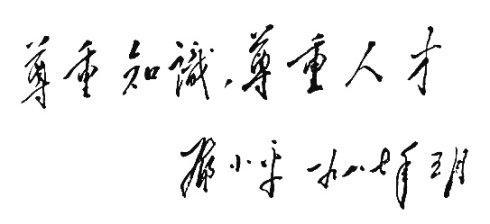 尊重知識，尊重人才
鄧小平 一九八七年五月